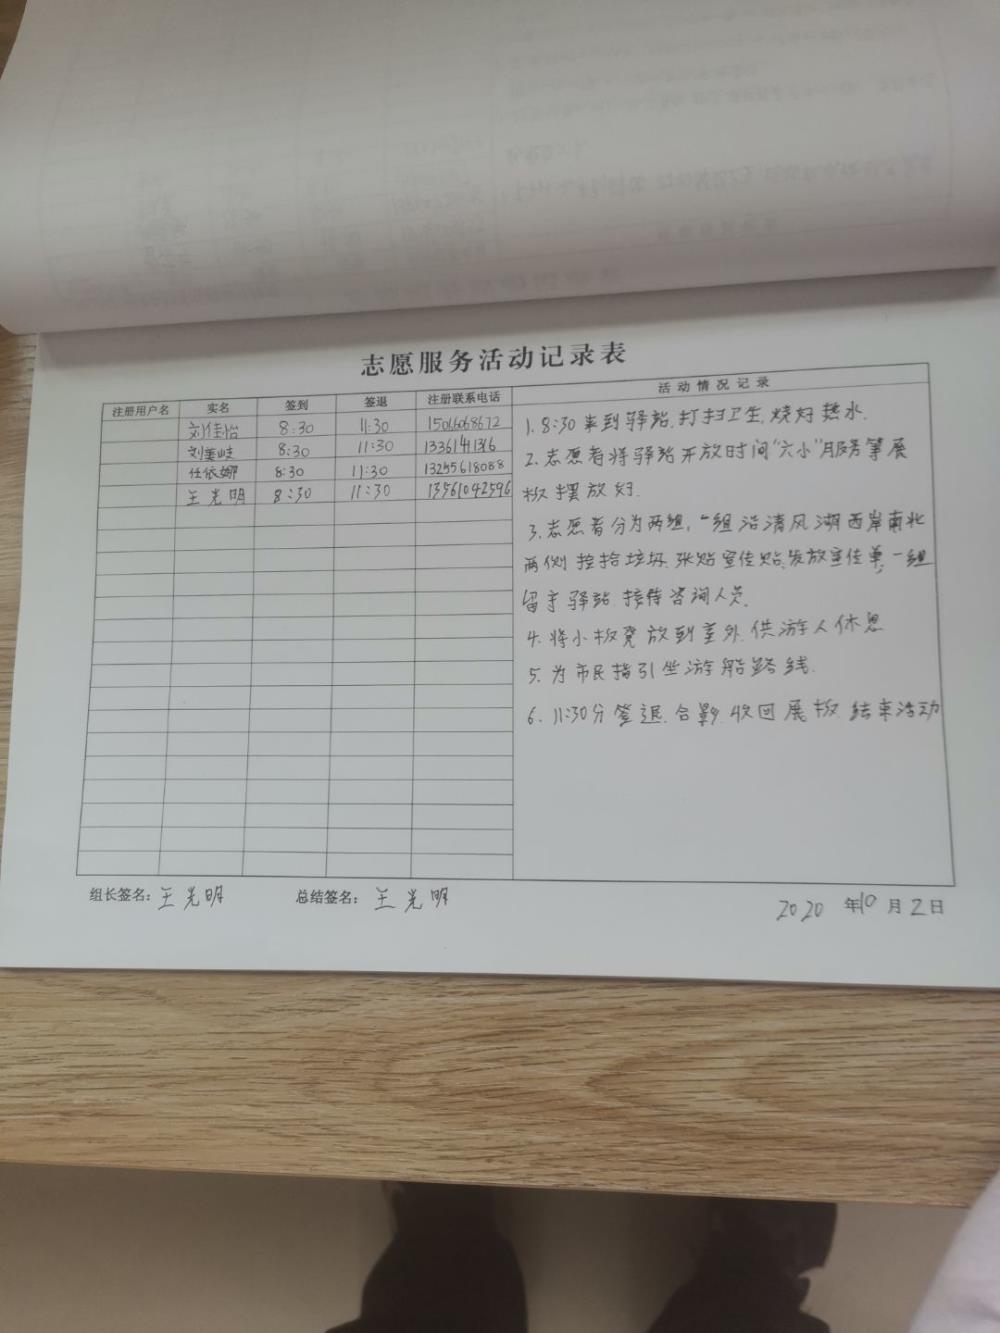 志愿服务活动记录表
注册用户名 实名 签到 签退 注册联系电话 活动情况记录
刘佳怡 8:30 11:30 15066068672
刘姜岐 8:30 11:30
任依娜 8:30 11:30 13255618088
王光明 8:30 11:30 13561042596
1. 8:30来到驿站,打扫卫生,烧好热水.
2. 志愿者将驿站开放时间"六小"服务等展
板摆放好.
3. 志愿者分为两组,一组沿清风湖西岸南北
两侧捡拾垃圾.张贴宣传贴,发放宣传单,一组
留守驿站.接待咨询人员.
4. 将小板凳放到室外.供游人休息
5. 为市民指引坐游船路线.
6. 11:30分签退.合影.收回展板.结束活动
组长签名:王光明 总结签名:王光明 2020年10月2日